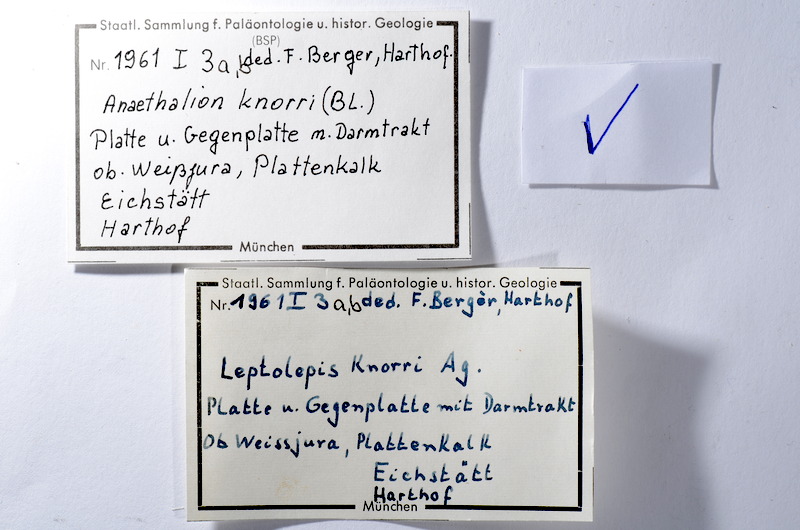 Staatl. Sammlung f. Paläontologie u. histor. Geologie
(BSP)
Nr. 1961 I 3a,b ded. F. Berger, Harthof.
Anaethalion knorri (BL.)
Platte u. Gegenplatte m. Darmtrakt
ob. Weißjura, Plattenkalk
Eichstätt
Harthof
München
Staatl. Sammlung f. Paläontologie u. histor. Geologie
Nr. 1961 I 3a,b ded. F. Berger, Harthof
Leptolepis Knorri Ag.
Platte u. Gegenplatte mit Darmtrakt
Ob Weissjura, Plattenkalk
Eichstätt
Harthof
München